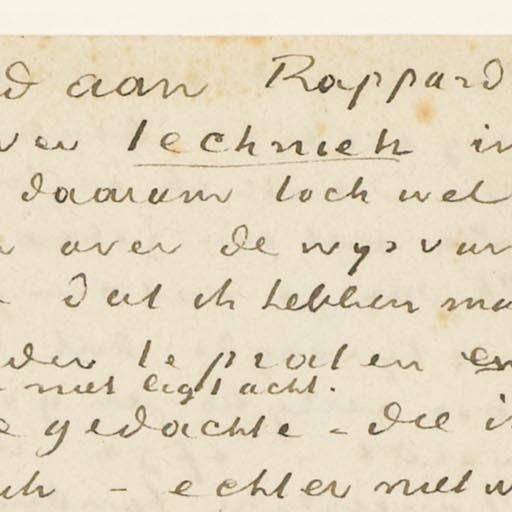 aan Rappard
over techniek in
daarom toch wel
over de wys van
dat ik hebben
te praten en
niet ligt acht.
gedachte - die i
- echter niet